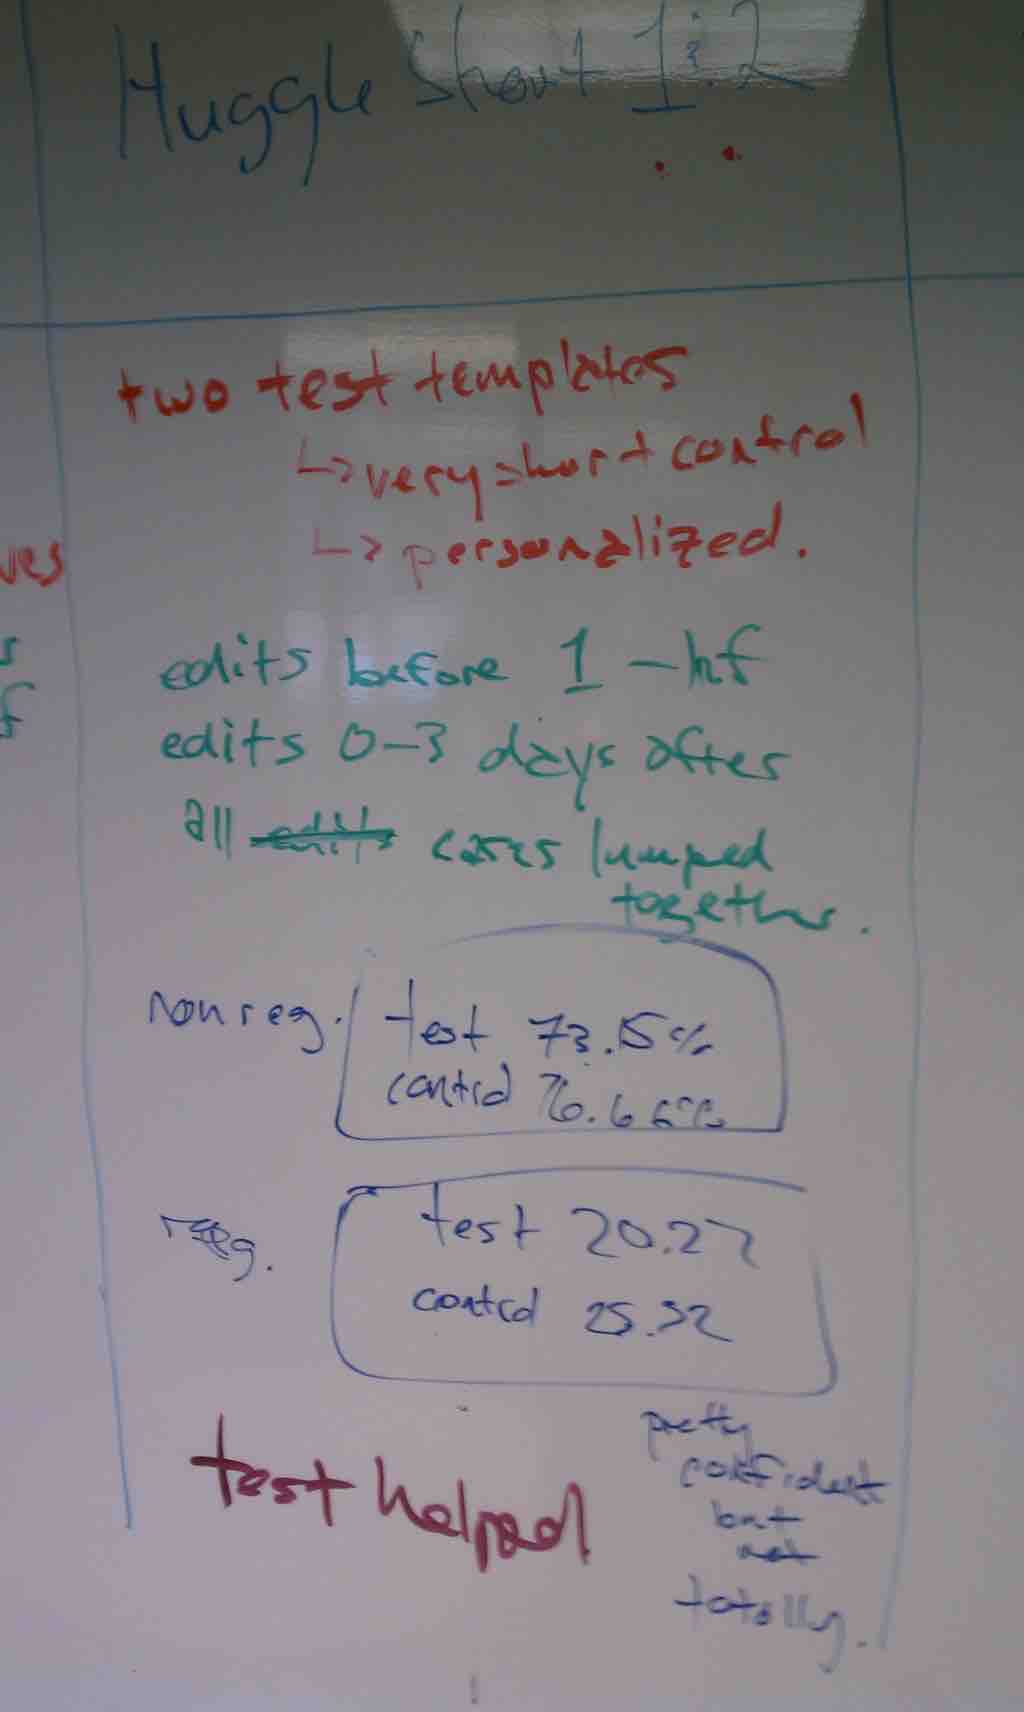 Huggle Short 1:2
two test templates
↳ very short control
↳ personalized.
ves
edits before 1 - hf
s
f
edits 0-3 days after
all edits cases lumped
together.
non reg.
test 73.15%
control 76.66%
reg.
test 20.27
control 25.32
test helped
pretty
confident
but
not
totally.